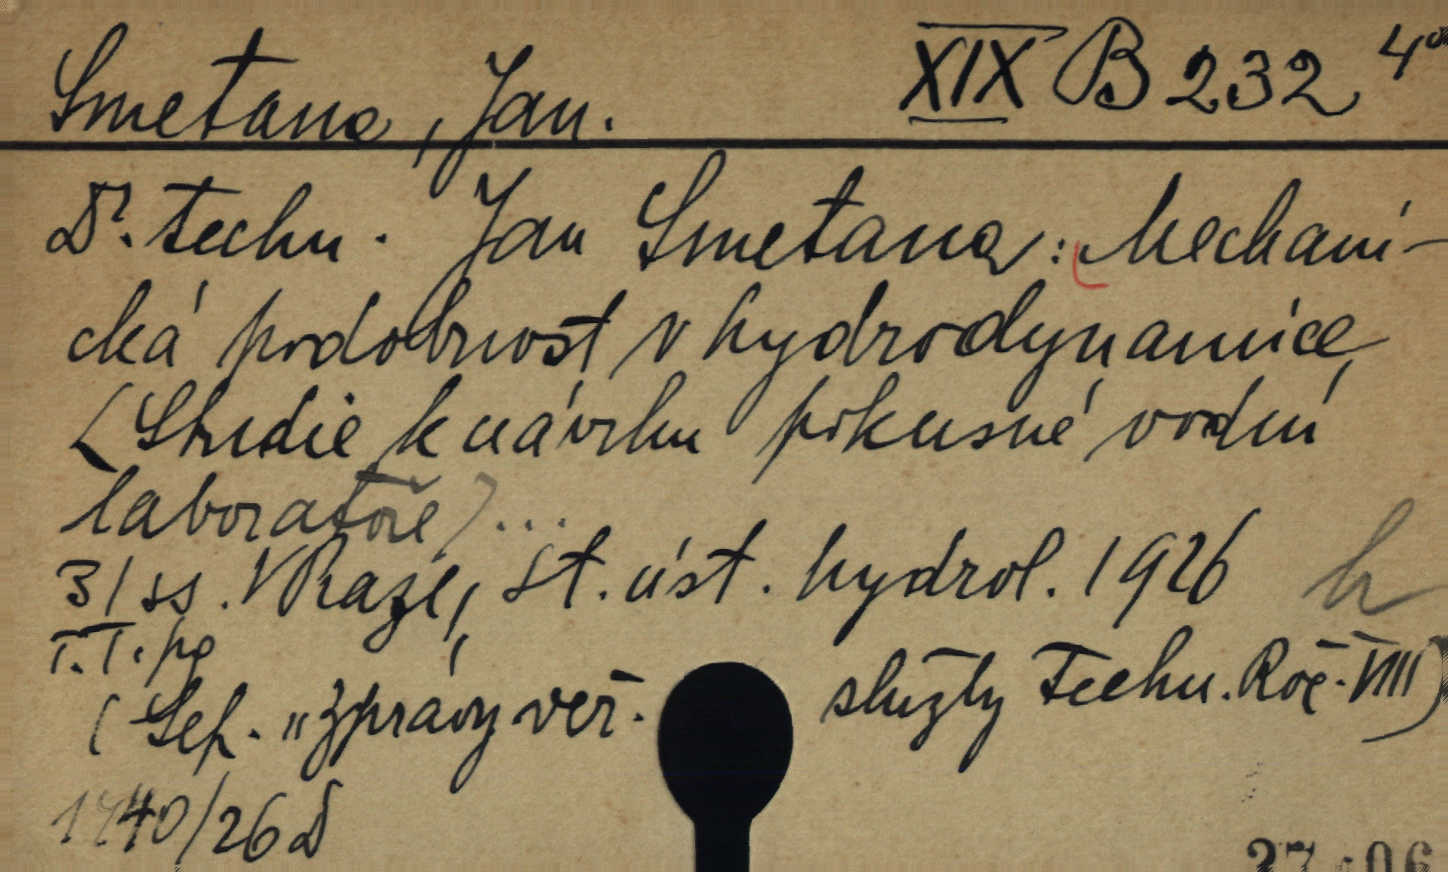 Smetana, Jan. XIX B 232 4°
Dr. techn. Jan Smetana: Mechani-
cká podobnost v hydrodynamice,
(Studie k návrhu pokusné vodní
laboratoře)...
31 ss. V Praze, St. úst. hydrol. 1926 h
T. T. pg
(Sep. "Zprávy veř. služby techn. Roč. VIII)
1740/26 D